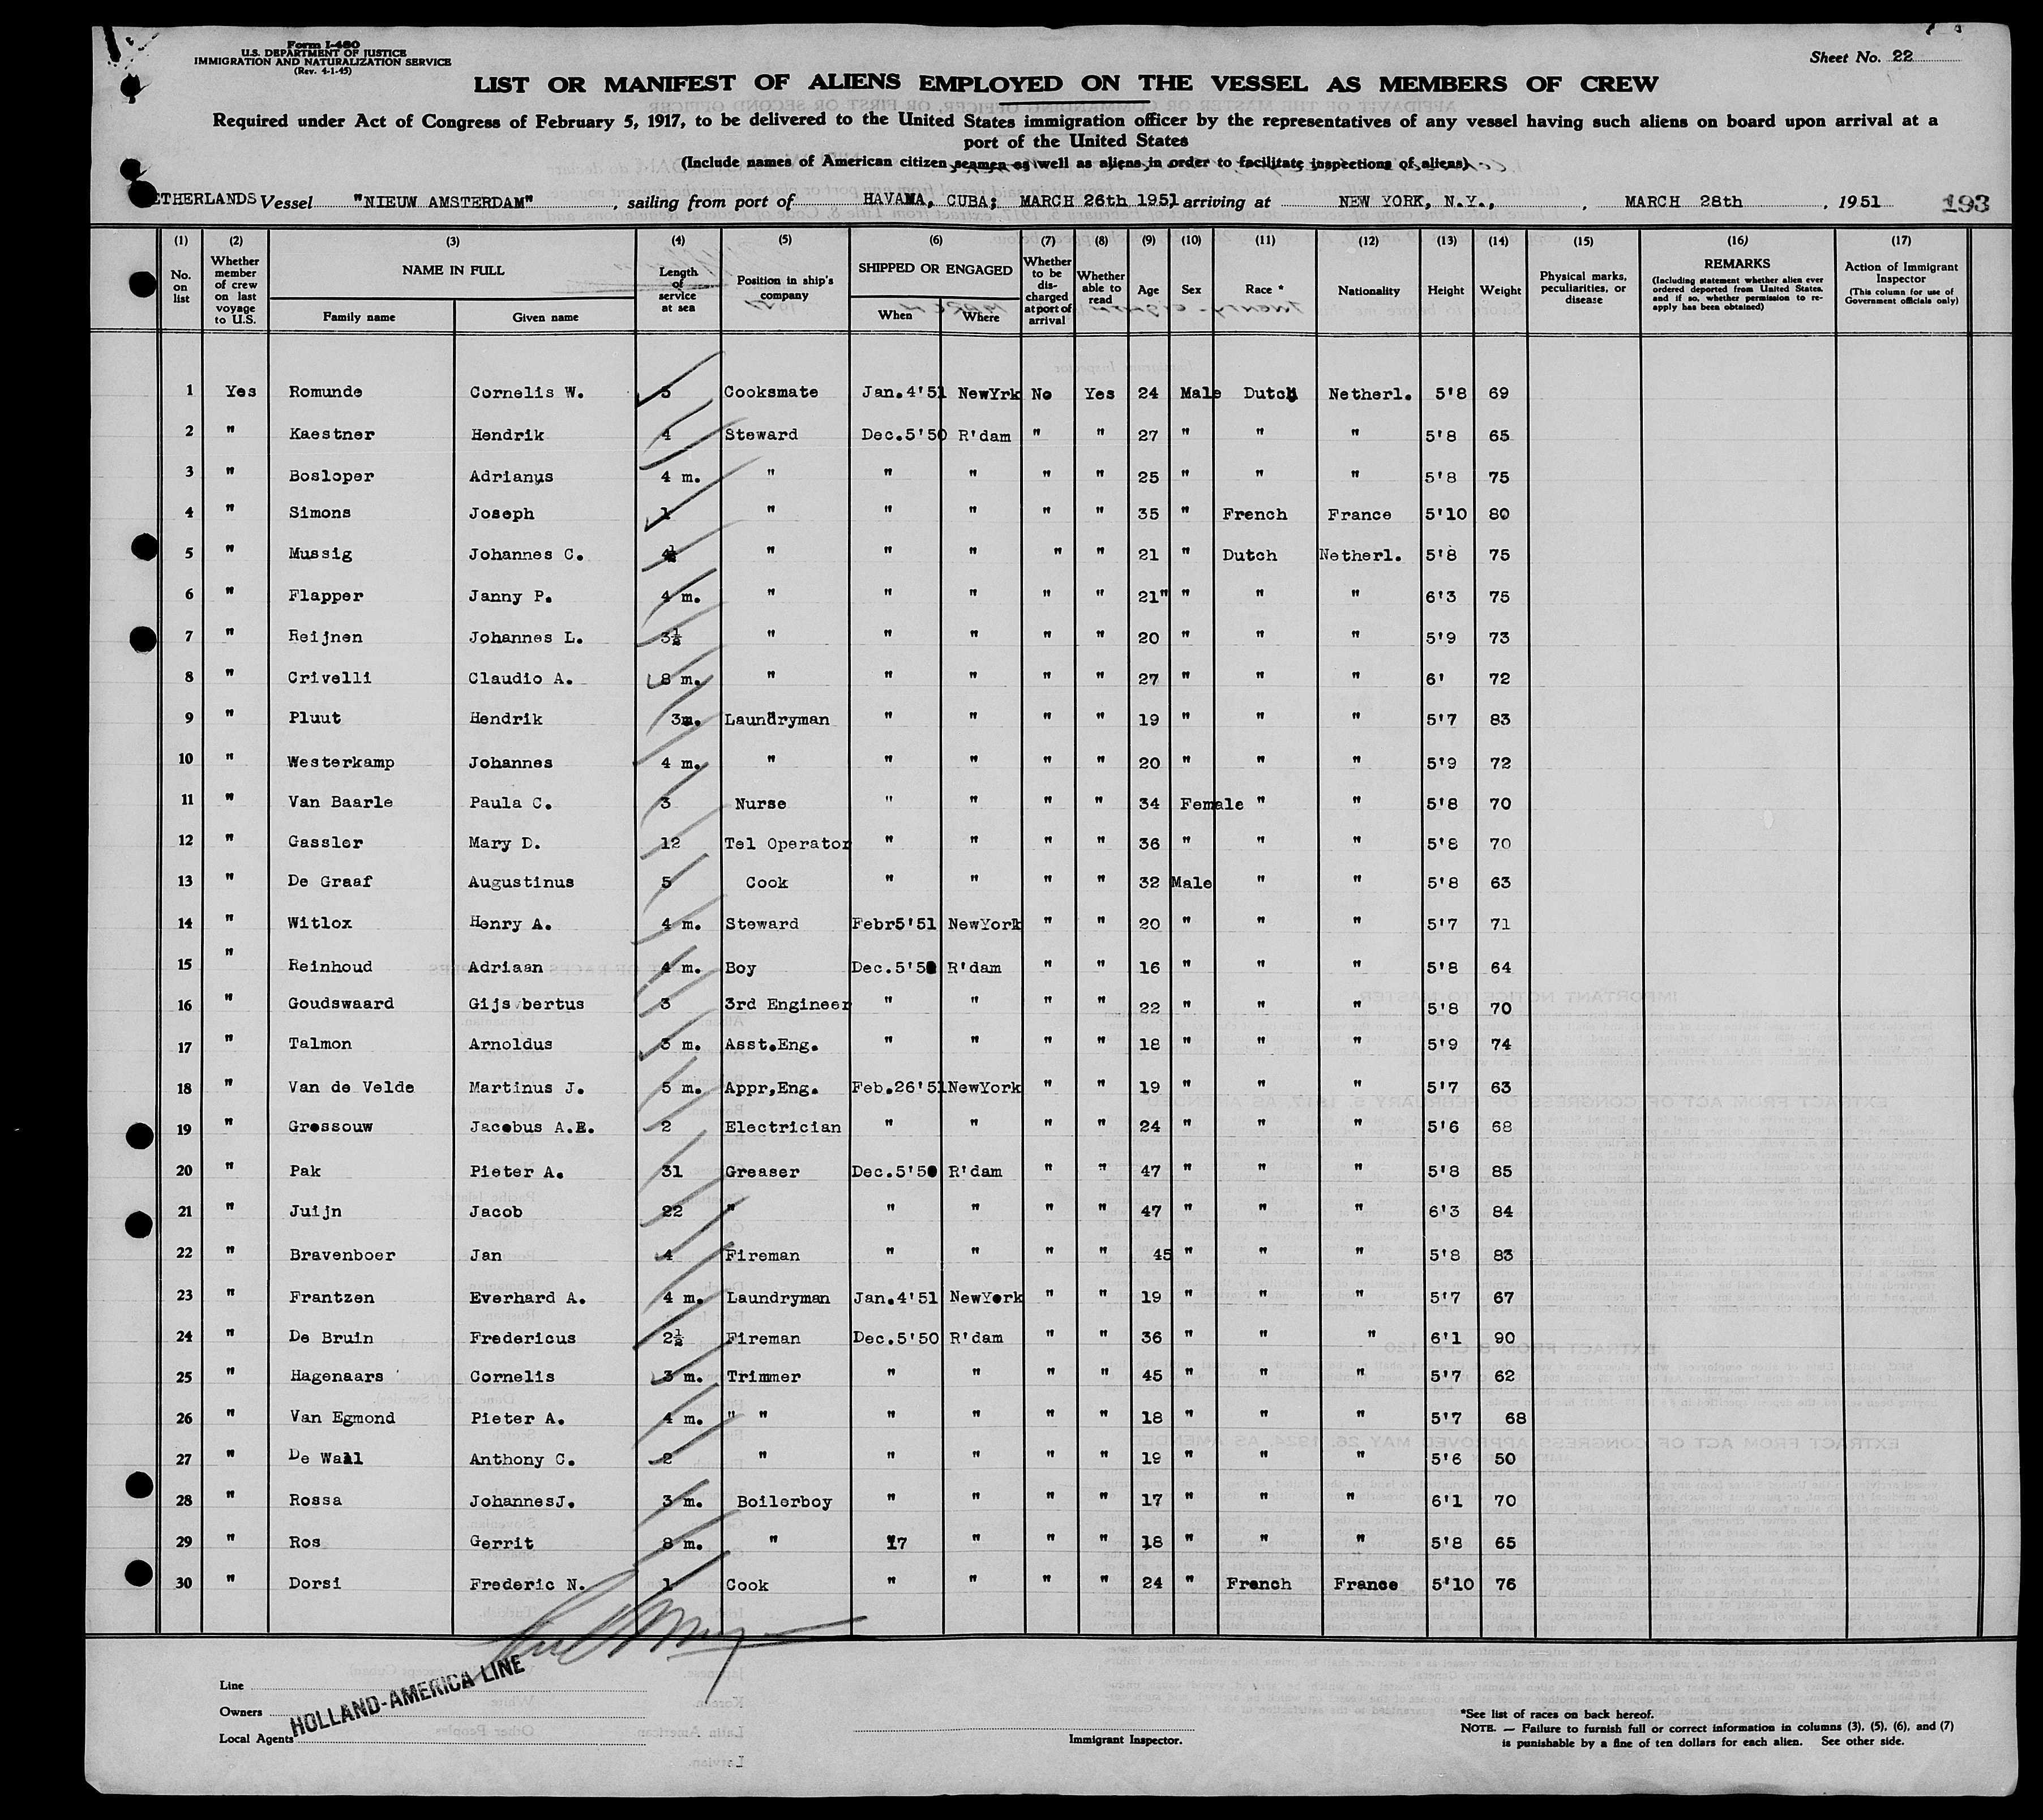 Form I-480
U.S. DEPARTMENT OF JUSTICE
IMMIGRATION AND NATURALIZATION SERVICE
(Rev. 4-1-45)
Sheet No. 22
LIST OR MANIFEST OF ALIENS EMPLOYED ON THE VESSEL AS MEMBERS OF CREW
Required under Act of Congress of February 5, 1917, to be delivered to the United States immigration officer by the representatives of any vessel having such aliens on board upon arrival at a
port of the United States
(Include names of American citizen seamen as well as aliens in order to facilitate inspections of aliens)
ETHERLANDS Vessel "NIEUW AMSTERDAM" , sailing from port of HAVANA, CUBA; MARCH 26th 1951 arriving at NEW YORK, N.Y., , MARCH 28th , 1951 193
(1) (2) (3) (4) (5) (6) (7) (8) (9) (10) (11) (12) (13) (14) (15) (16) (17)
No. on list
Whether member of crew on last voyage to U.S.
NAME IN FULL
Family name
Given name
Length of service at sea
Position in ship's company
SHIPPED OR ENGAGED
When
Where
Whether to be discharged at port of arrival
Whether able to read
Age
Sex
Race *
Nationality
Height
Weight
Physical marks, peculiarities, or disease
REMARKS
(Including statement whether alien ever ordered deported from United States, and if so, whether permission to reapply has been obtained)
Action of Immigrant Inspector
(This column for use of Government officials only)
1 Yes Romunde Cornelis W. 5 Cooksmate Jan.4'51 NewYrk No Yes 24 Male Dutch Netherl. 5'8 69
2 " Kaestner Hendrik 4 Steward Dec.5'50 R'dam " " 27 " " " 5'8 65
3 " Bosloper Adrianys 4 m. " " " " " 25 " " " 5'8 75
4 " Simons Joseph 1 " " " " " 35 " French France 5'10 80
5 " Mussig Johannes C. 4½ " " " " " 21 " Dutch Netherl. 5'8 75
6 " Flapper Janny P. 4 m. " " " " " 21" " " " 6'3 75
7 " Reijnen Johannes L. 3½ " " " " " 20 " " " 5'9 73
8 " Crivelli Claudio A. 8 m. " " " " " 27 " " " 6' 72
9 " Pluut Hendrik 3m. Laundryman " " " " 19 " " " 5'7 83
10 " Westerkamp Johannes 4 m. " " " " " 20 " " " 5'9 72
11 " Van Baarle Paula C. 3 Nurse " " " " 34 Female " " 5'8 70
12 " Gassler Mary D. 12 Tel Operator " " " " 36 " " " 5'8 70
13 " De Graaf Augustinus 5 Cook " " " " 32 Male " " 5'8 63
14 " Witlox Henry A. 4 m. Steward Febr5'51 NewYork " " 20 " " " 5'7 71
15 " Reinhoud Adriaan 4 m. Boy Dec.5'50 R'dam " " 16 " " " 5'8 64
16 " Goudswaard Gijsbertus 3 3rd Engineer " " " " 22 " " " 5'8 70
17 " Talmon Arnoldus 3 m. Asst.Eng. " " " " 18 " " " 5'9 74
18 " Van de Velde Martinus J. 5 m. Appr,Eng. Feb.26'51 NewYork " " 19 " " " 5'7 63
19 " Grossouw Jacobus A.E. 2 Electrician " " " " 24 " " " 5'6 68
20 " Pak Pieter A. 31 Greaser Dec.5'50 R'dam " " 47 " " " 5'8 85
21 " Juijn Jacob 22 " " " " " 47 " " " 6'3 84
22 " Bravenboer Jan 4 Fireman " " " " 45 " " " 5'8 83
23 " Frantzen Everhard A. 4 m. Laundryman Jan.4'51 NewYork " " 19 " " " 5'7 67
24 " De Bruin Fredericus 2½ Fireman Dec.5'50 R'dam " " 36 " " " 6'1 90
25 " Hagenaars Cornelis 3 m. Trimmer " " " " 45 " " " 5'7 62
26 " Van Egmond Pieter A. 4 m. " " " " " " 18 " " " 5'7 68
27 " De Waal Anthony C. 2 " " " " " 19 " " " 5'6 50
28 " Rossa JohannesJ. 3 m. Boilerboy " " " " 17 " " " 6'1 70
29 " Ros Gerrit 8 m. " 17 " " " 18 " " " 5'8 65
30 " Dorsi Frederic N. 1 Cook " " " " 24 " French France 5'10 76
Line
Owners
Local Agents
HOLLAND-AMERICA LINE
Immigrant Inspector.
*See list of races on back hereof.
NOTE. — Failure to furnish full or correct information in columns (3), (5), (6), and (7)
is punishable by a fine of ten dollars for each alien. See other side.